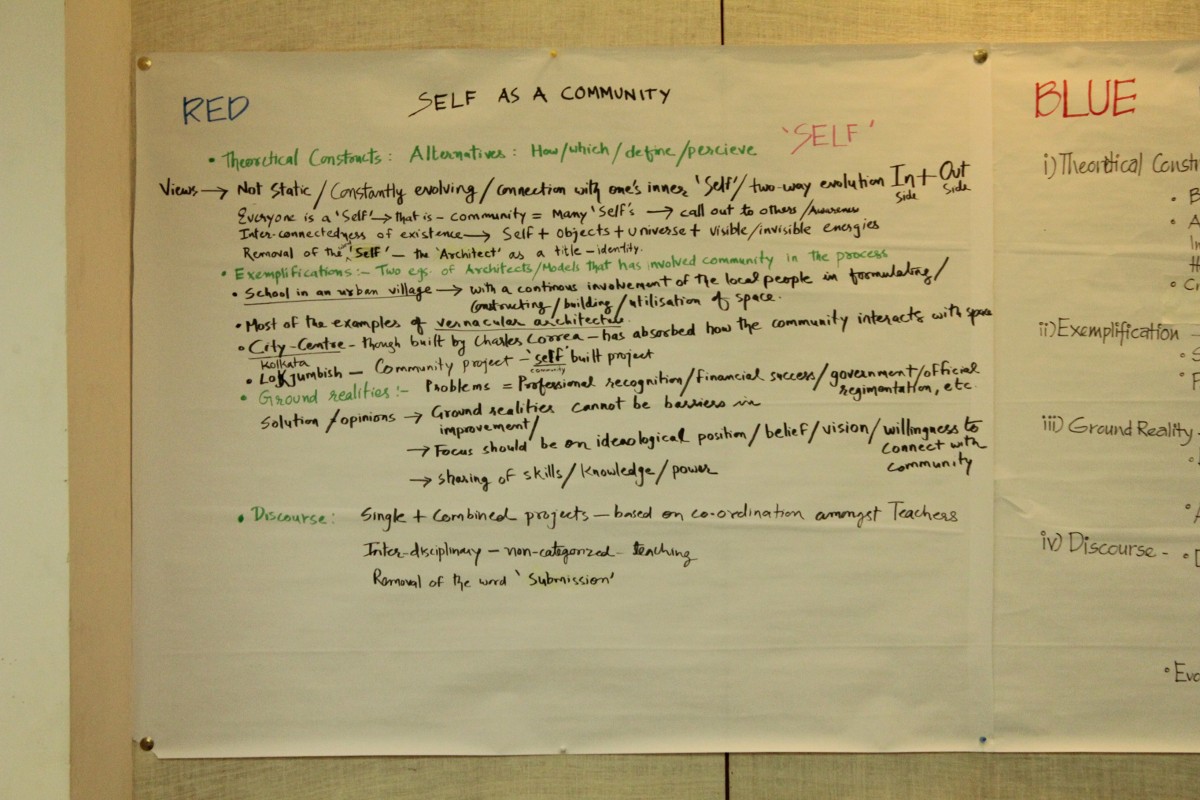 RED
SELF AS A COMMUNITY
'SELF'
• Theortical Constructs: Alternatives: How/which/define/percieve
Views → Not Static/Constantly evolving/connection with one's inner 'Self'/two-way evolution In Side + Out Side
Everyone is a 'Self' → that is - community = Many 'Self's → call out to others/Awareness
Inter-connectedness of existence → Self + objects + universe + visible/invisible energies
Removal of the 'Self' - the 'Architect' as a title - identity.
• Exemplifications:- Two egs. of Architects/Models that has involved community in the process
• School in an urban village → with a continous involvement of the local people in formulating/
constructing/building/utilisation of space.
• Most of the examples of vernacular architecture.
• City-Centre - though built by Charles Correa - has absorbed how the community interacts with space
Kolkata
• Lokjumbish - Community project - 'self' built project
community
• Ground realities:- Problems = Professional recognition/financial success/government/official
regimentation, etc.
Solution/opinions → Ground realities cannot be barriers in
improvement/
→ Focus should be on ideological position/belief/vision/willingness to
connect with
community
→ sharing of skills/knowledge/power
• Discourse: Single + Combined projects - based on co-ordination amongst Teachers
Inter-disciplinary - non-categorized - teaching
Removal of the word 'Submission'
BLUE
i) Theoritical Const
• B
• A
In
H
• Cr
ii) Exemplification -
• S
• F
iii) Ground Reality -
• A
iv) Discourse - •
• Eva